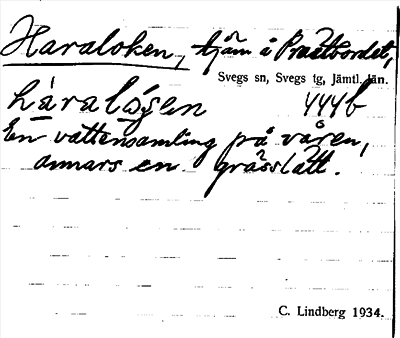 Haraloken, tjärn å Prästbordet,
Svegs sn, Svegs tg, Jämtl. län.
håralo̊gen 444b
En vattensamling på våren,
annars en grässlått.
C. Lindberg 1934.